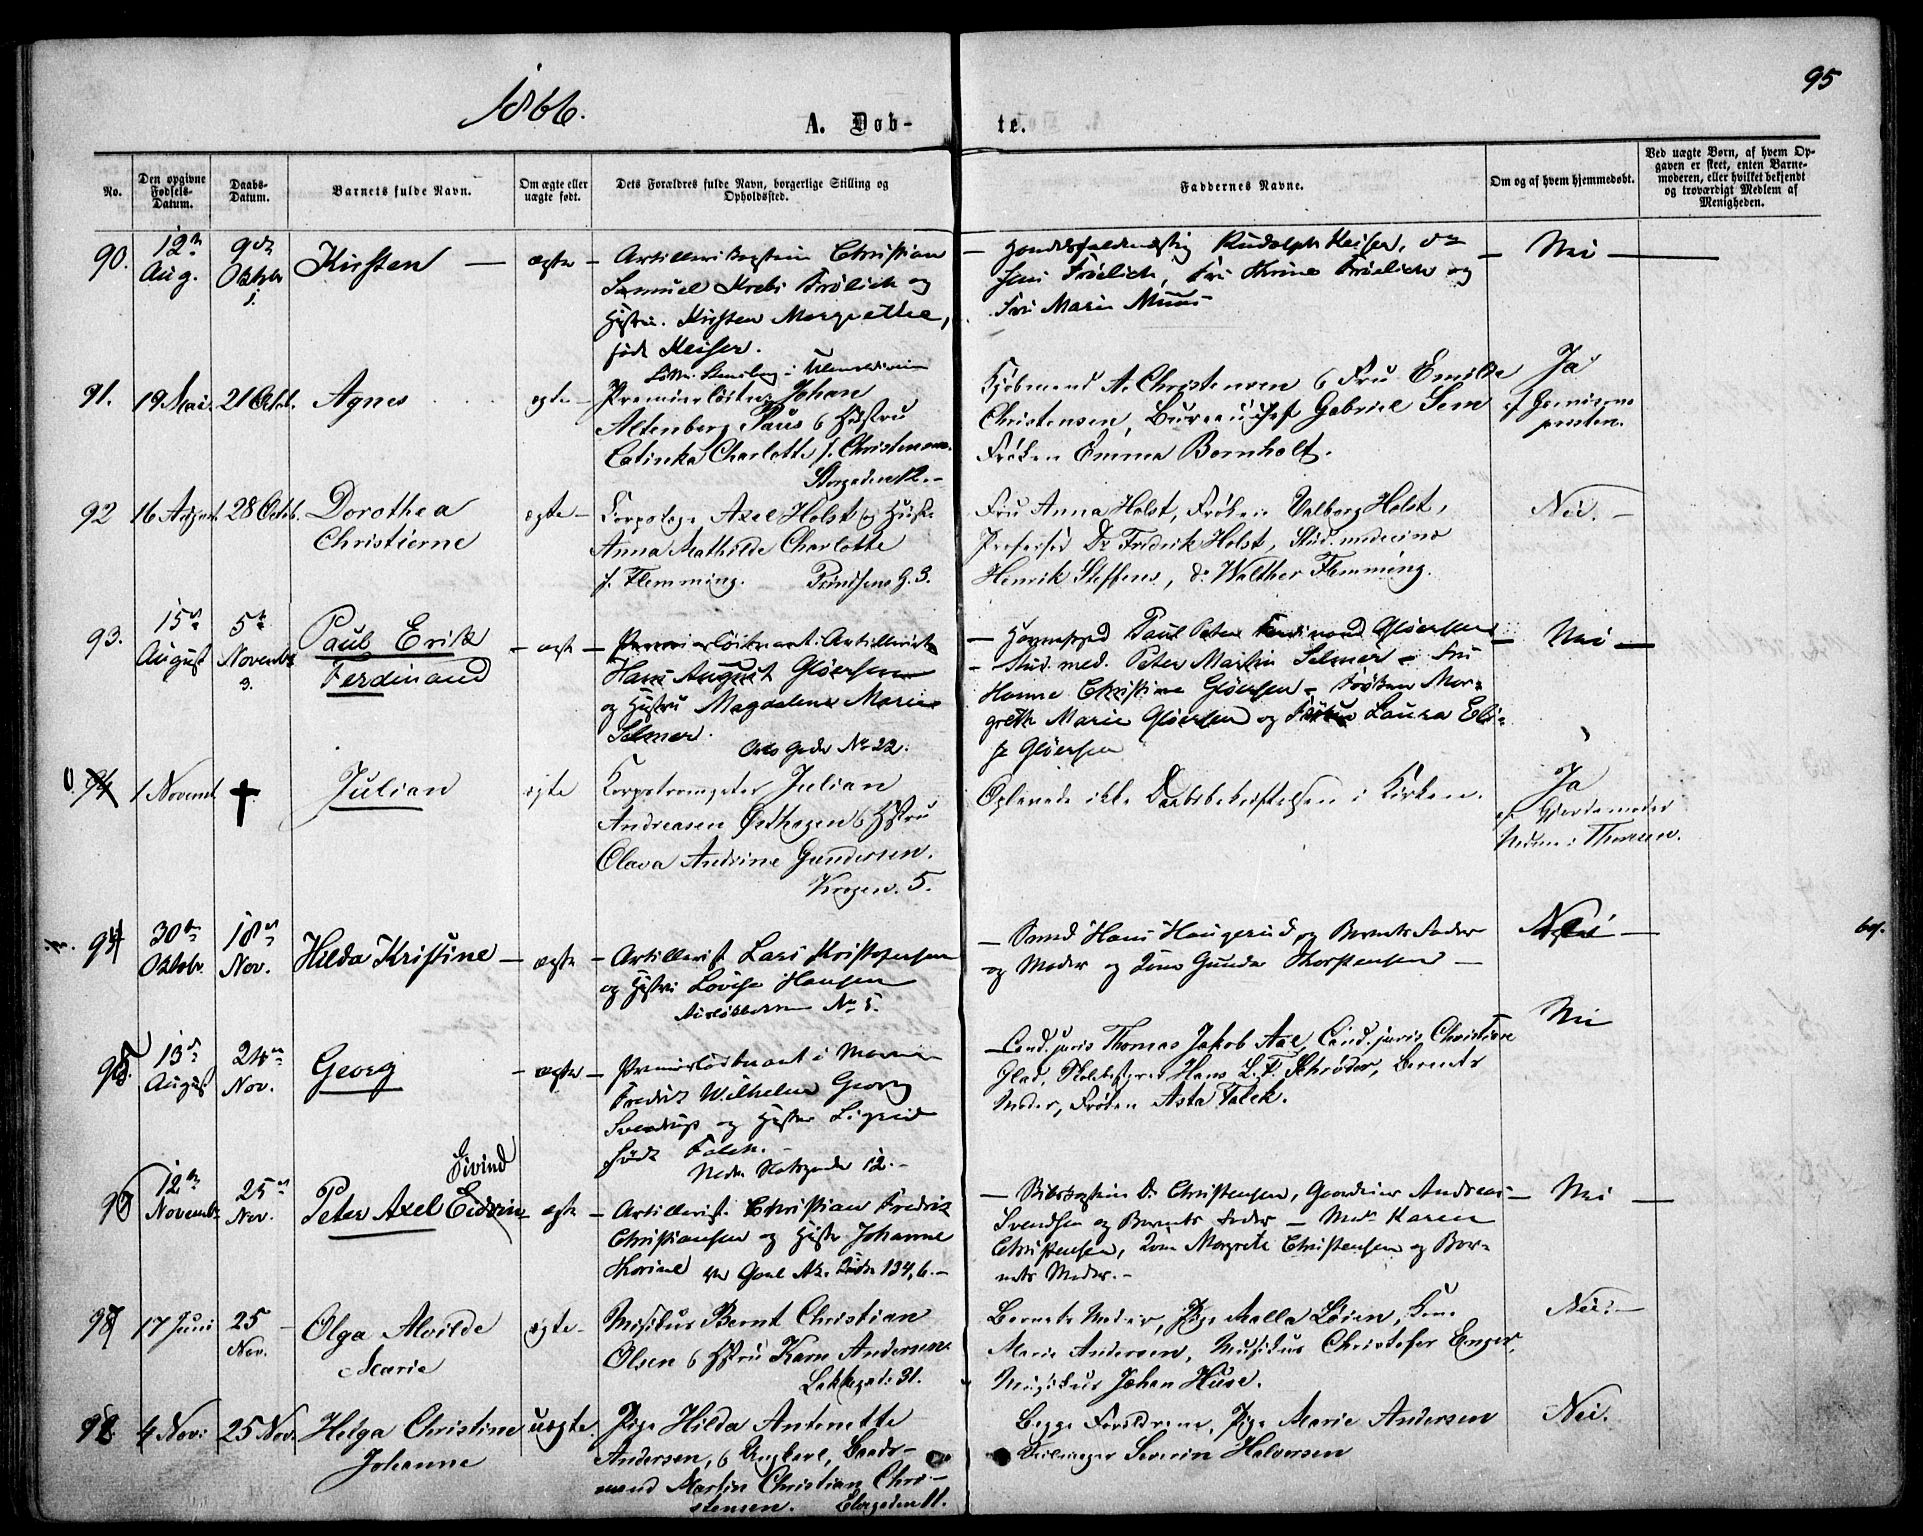 1866.
95
A. Døb-
te.
No.
Den opgivne
Fødsels-
Datum.
Daabs-
Datum.
Barnets fulde Navn.
Om ægte eller
uægte født.
Dets Forældres fulde Navn, borgerlige Stilling og
Opholdssted.
Faddernes Navne.
Om og af hvem hjemmedøbt.
Ved uægte Børn, af hvem Op-
gaven er skeet, enten Barne-
moderen, eller hvilket bekjendt
og troværdigt Medlem af
Menigheden.
90.
12
Aug.
9de
Oktober
Kirsten
ægte
Artillerikaptein Christian
Samuel Krebs Frölich og
Hustru Kirsten Margrethe,
född Keiser.
Rudolph Keiser,
Frölich, Fru Frölich og
Fru Marie Muus
Nei
91.
19 Mai
21 Octb.
Agnes
ægte
Premierløitn. Johan
Altenberg Paus & Hustru
Catinka Charlotte f. Christensen
Storgaden 12.
Kjøbmand A. Christensen & Fru Emilie
Christensen, Bureauchef Gabriel Sem
Frøken Emma Bornholt.
Ja
af Garnisons
presten.
92
16 August
28 Octb.
Dorothea
Christierne
ægte
Corpslæge Axel Holst og Hustru
Anna Mathilde Charlotte
f. Flemming. Prindsens G. 3.
Fru Anna Holst, Frøken Valborg Holst,
Professor Dr Fredrik Holst, Stud. medecinæ
Henrik Steffens, do Walther Flemming.
Nei.
93.
15
August
5te
Novembr
Paul Erik
Ferdinand
ægte
Premierløitnant i Artilleriet
Hans August Gløersen
og Hustru Magdalena Marie
Selmer.
Gade No 22.
Paul Peter Ferdinand Gløersen
Stud. med. Peter Martin Selmer - Fru
Hanne Christine Gløersen - Frøken Mar-
grethe Marie Gløersen og Frøken Laura Eli-
se Gløersen
Nei
0.
94
1 Novemb.
†
Julian
ægte
Korpstrompeter Julian
Andreasen Østhagen & Hstru
Olava Andrine Gundersen.
Krogen. 5.
Oplevede ikke Daabsbekræftelsen i Kirken.
Ja
af Gjordemoder
Thoresen.
94
30te
Oktob.
18
Nov.
Hilda Kristine
ægte
Artillerist Lars Kristofersen
og Hustru Lovise Hansen
No 5.
Smed Hans Haugerud og Barnets Fader
og Moder og Gunda Thorstensen
Nei
95
13
August
24
Nov.
Georg
ægte
Premierløitnant i Marinen
Fredrik Wilhelm Georg
Svendrup og Hustru Sigrid
född Falck.
Nedre Slotsgade 12.
Cand. juris Thomas Jakob Aal, Cand. juris Christian
Glad, Skolebestyrer Hans L. F. Schrøder, Barnets
Moder, Frøken Asta Falck.
Nei
96
12te
Novembr
25
Nov.
Eivind
Peter Axel Edvin
ægte
Artillerist Christian Fredrik
Christiansen og Hustru Johanne
Thorine 134, 6.
Dr Christensen, Gaardeier Andreas
Svendsen og Barnets Fader - Mad. Karen
Christensen, Margrete Christensen og Bar-
nets Moder.
Nei
97
17 Juni
25
Nov.
Olga Alvilde
Marie
ægte
Musikus Bernt Christian
Olsen & Hstru Karn Andersen
Lakkegad. 31.
Barnets Moder, Pige Malla Løien, Kone
Marie Andersen, Musikus Christofer Enger,
Musikus Johan Huse.
Nei.
98
4 Nov.
25 Nov.
Helga Christine
Johanne
uægte.
Pige Hilda Antonette
Andersen, & Ungkarl, Baads-
mand Martin Christian Chri-
stensen. Elvegaden 11.
Begge Forældrene, Pige Marie Andersen
Severin Halvorsen
Nei.